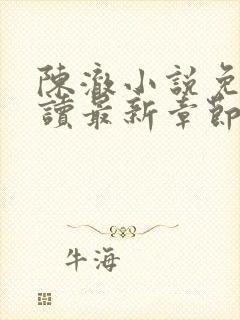 陳澈小説免
讀最新章節
牛海